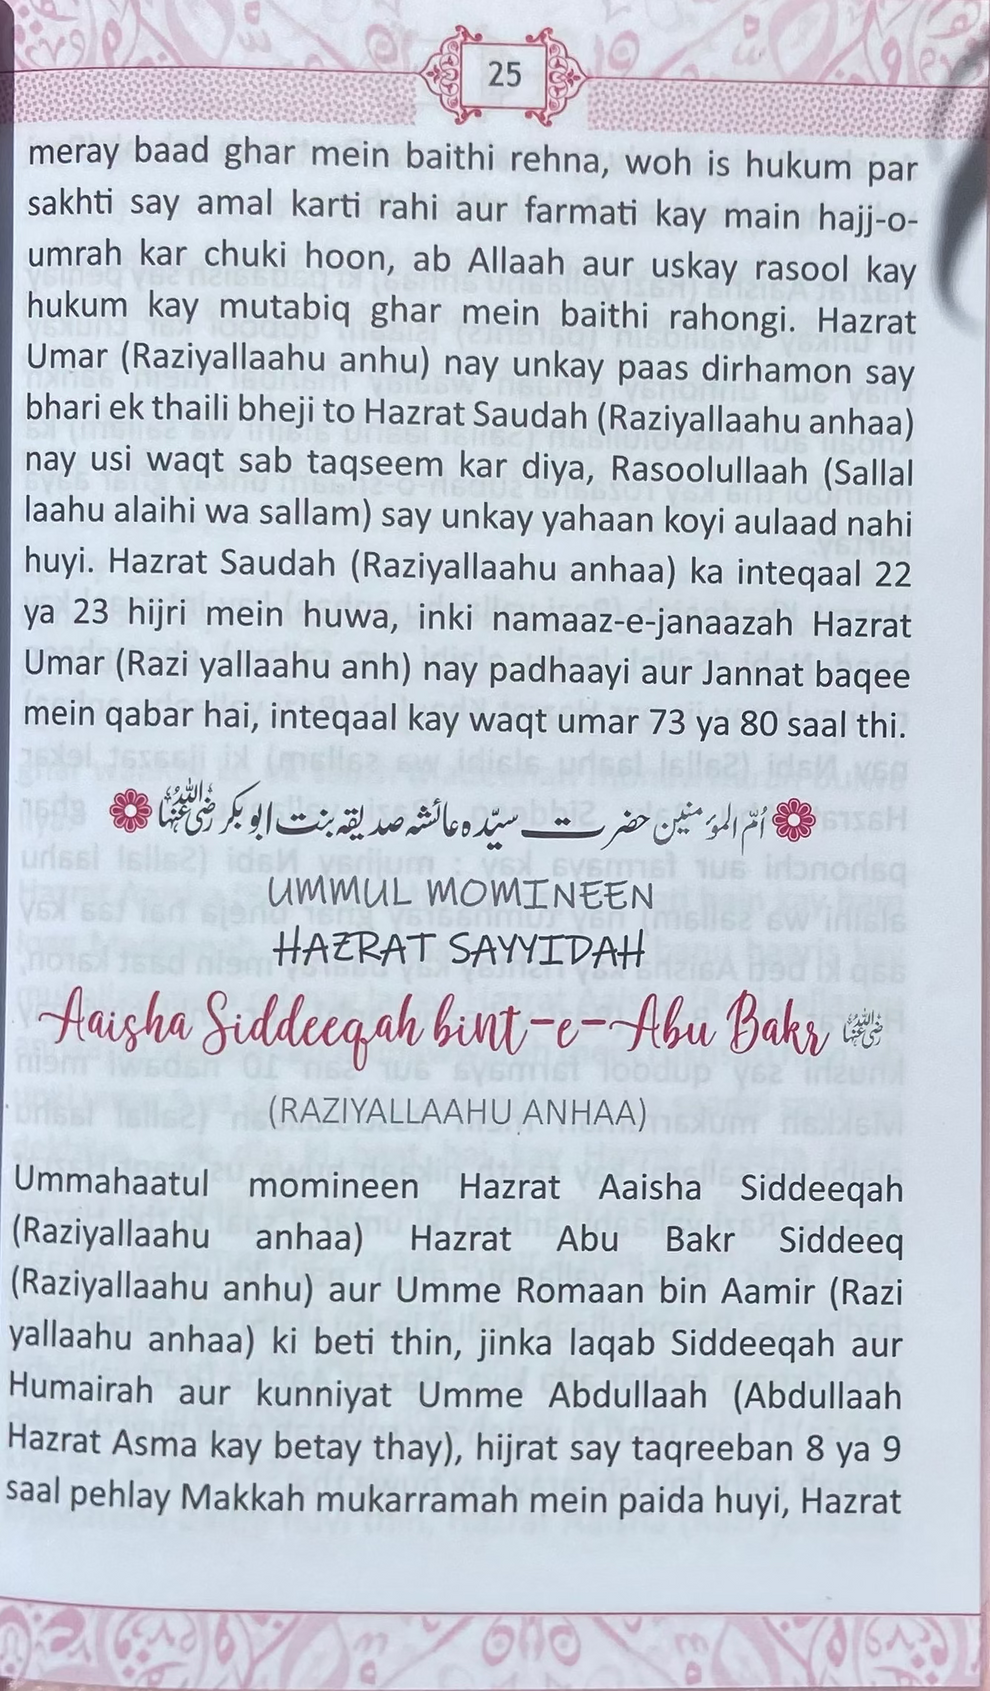 25
meray baad ghar mein baithi rehna, woh is hukum par
sakhti say amal karti rahi aur farmati kay main hajj-o-
umrah kar chuki hoon, ab Allaah aur uskay rasool kay
hukum kay mutabiq ghar mein baithi rahongi. Hazrat
Umar (Raziyallaahu anhu) nay unkay paas dirhamon say
bhari ek thaili bheji to Hazrat Saudah (Raziyallaahu anhaa)
nay usi waqt sab taqseem kar diya, Rasoolullaah (Sallal
laahu alaihi wa sallam) say unkay yahaan koyi aulaad nahi
huyi. Hazrat Saudah (Raziyallaahu anhaa) ka inteqaal 22
ya 23 hijri mein huwa, inki namaaz-e-janaazah Hazrat
Umar (Razi yallaahu anh) nay padhaayi aur Jannat baqee
mein qabar hai, inteqaal kay waqt umar 73 ya 80 saal thi.
اُمّ المؤمنین حضرت سیّدہ عائشہ صدیقہ بنت ابو بکر رضی اللہ عنہا
UMMUL MOMINEEN
HAZRAT SAYYIDAH
Aaisha Siddeeqah bint-e-Abu Bakr رضی اللہ عنہا
(RAZIYALLAAHU ANHAA)
Ummahaatul momineen Hazrat Aaisha Siddeeqah
(Raziyallaahu anhaa) Hazrat Abu Bakr Siddeeq
(Raziyallaahu anhu) aur Umme Romaan bin Aamir (Razi
yallaahu anhaa) ki beti thin, jinka laqab Siddeeqah aur
Humairah aur kunniyat Umme Abdullaah (Abdullaah
Hazrat Asma kay betay thay), hijrat say taqreeban 8 ya 9
saal pehlay Makkah mukarramah mein paida huyi, Hazrat